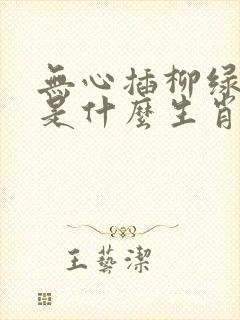 無心插柳绿
是什麼生肖
王藝潔